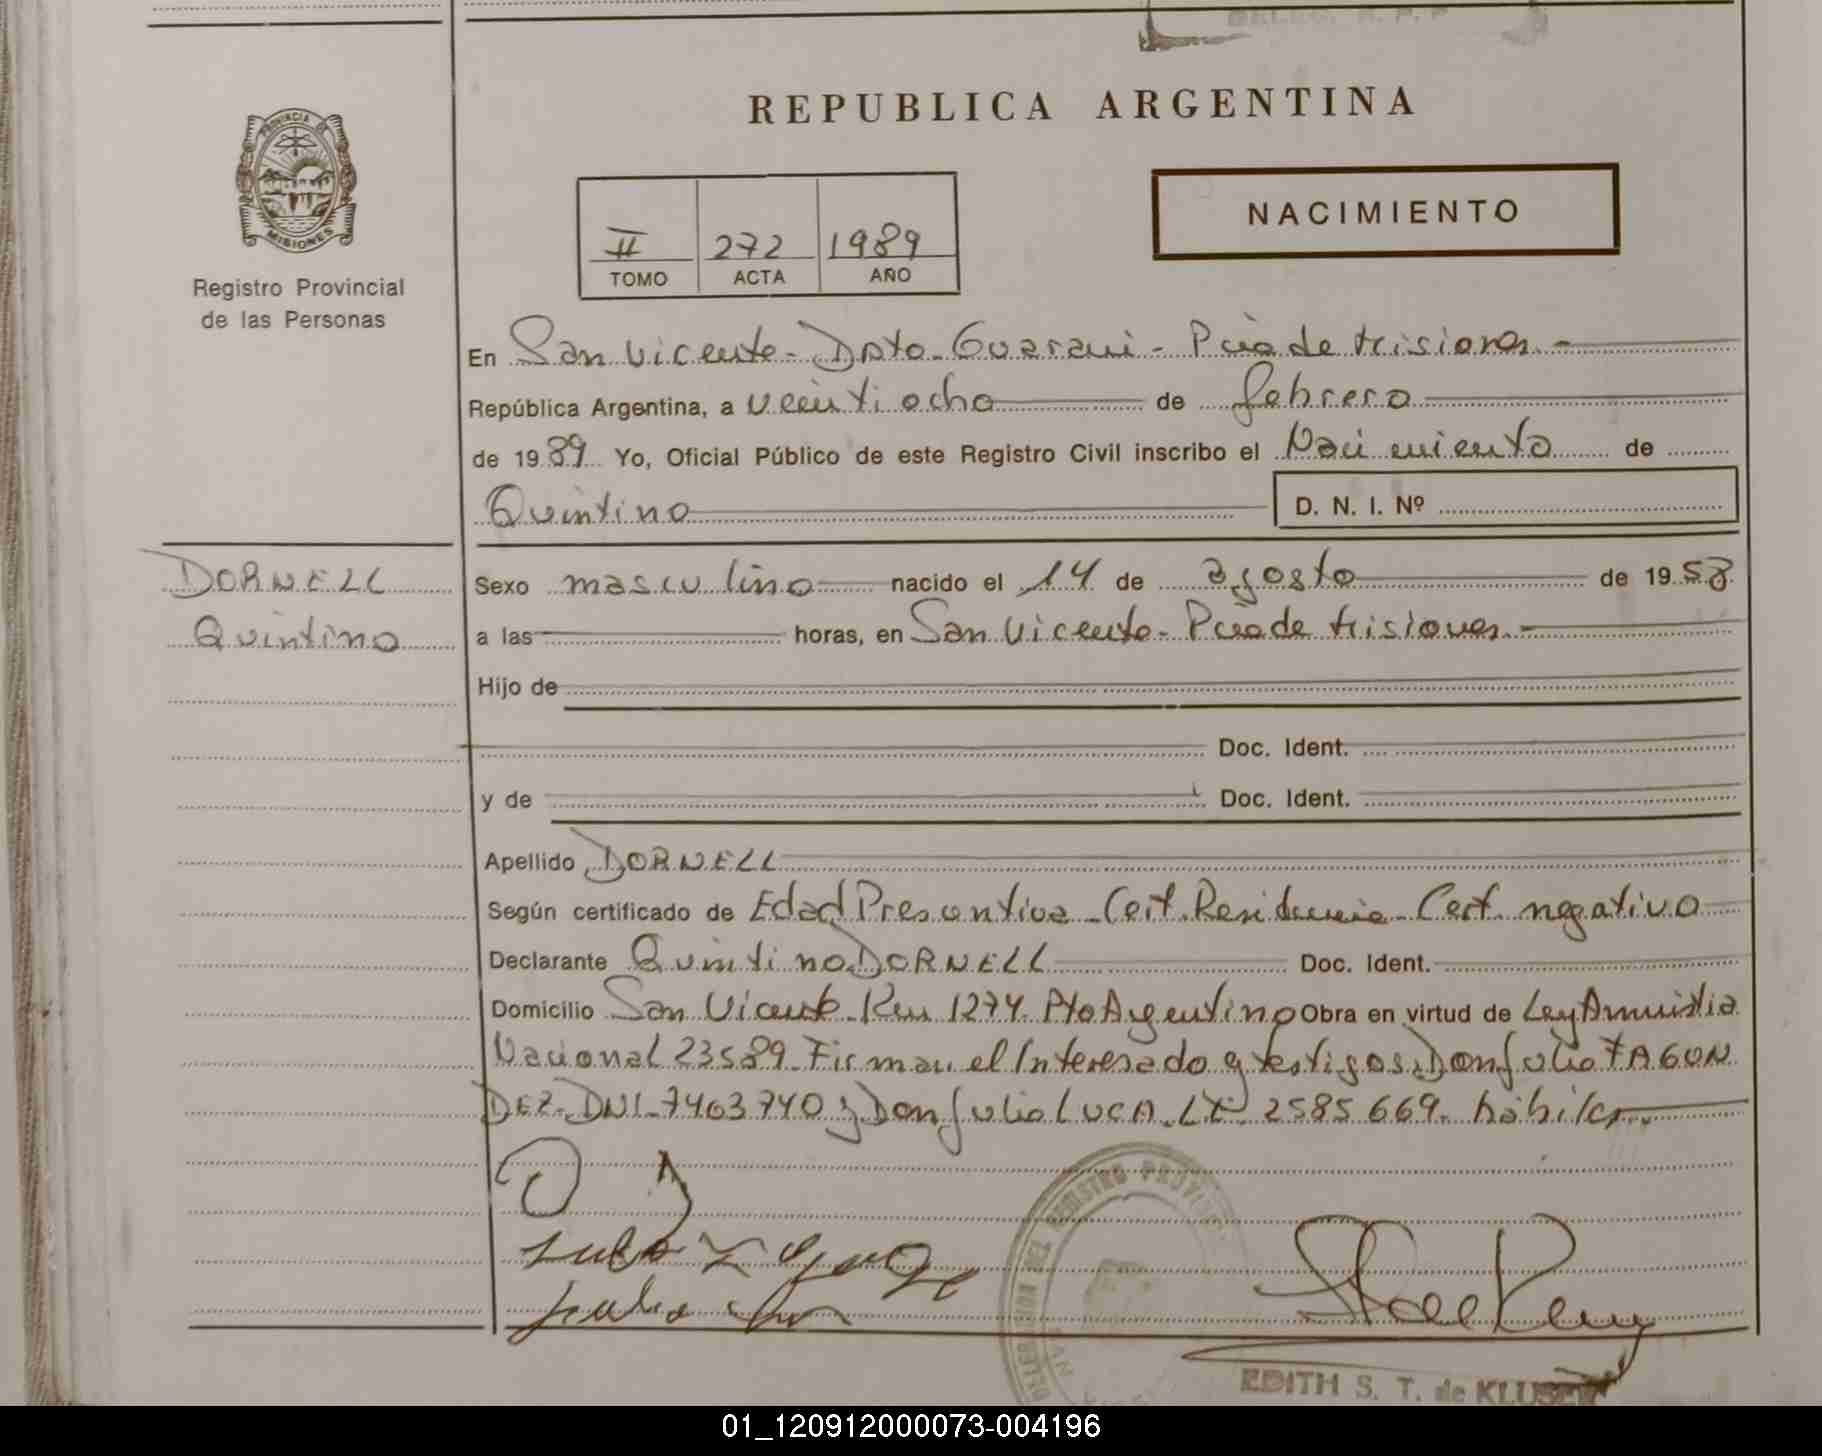 REPUBLICA ARGENTINA
PROVINCIA DE
MISIONES
Registro Provincial
de las Personas
II 272 1989
TOMO ACTA AÑO
NACIMIENTO
En San Vicente - Dpto. Guarani - Pcia de Misiones -
República Argentina, a veintiocho de febrero
de 1989 Yo, Oficial Público de este Registro Civil inscribo el Nacimiento de
Quintino D. N. I. Nº
DORNELL
Quintino
Sexo masculino nacido el 14 de agosto de 1958
a las horas, en San Vicente - Pcia de Misiones -
Hijo de
Doc. Ident.
y de Doc. Ident.
Apellido DORNELL
Según certificado de Edad Presuntiva - Cert. Residencia - Cert. negativo
Declarante Quintino DORNELL Doc. Ident.
Domicilio San Vicente - Km 1274 - Pto Argentino Obra en virtud de Ley Amnistia
Nacional 23589 - Firman el Interesado y testigos Don Julio FAGUN
DEZ - DNI - 7463740 y Don Julio LUCA - LE 2585669 - hábiles -
EDITH S. T. de KLUSE
01_120912000073-004196